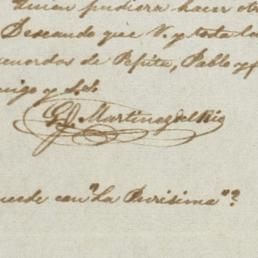 quien pudiera hacer otro
Deseando que V. y toda la
cuerdos de Pepita, Pablo y
migo y S.S.
G. Martinez del Rio
uede con "La Purisima"?